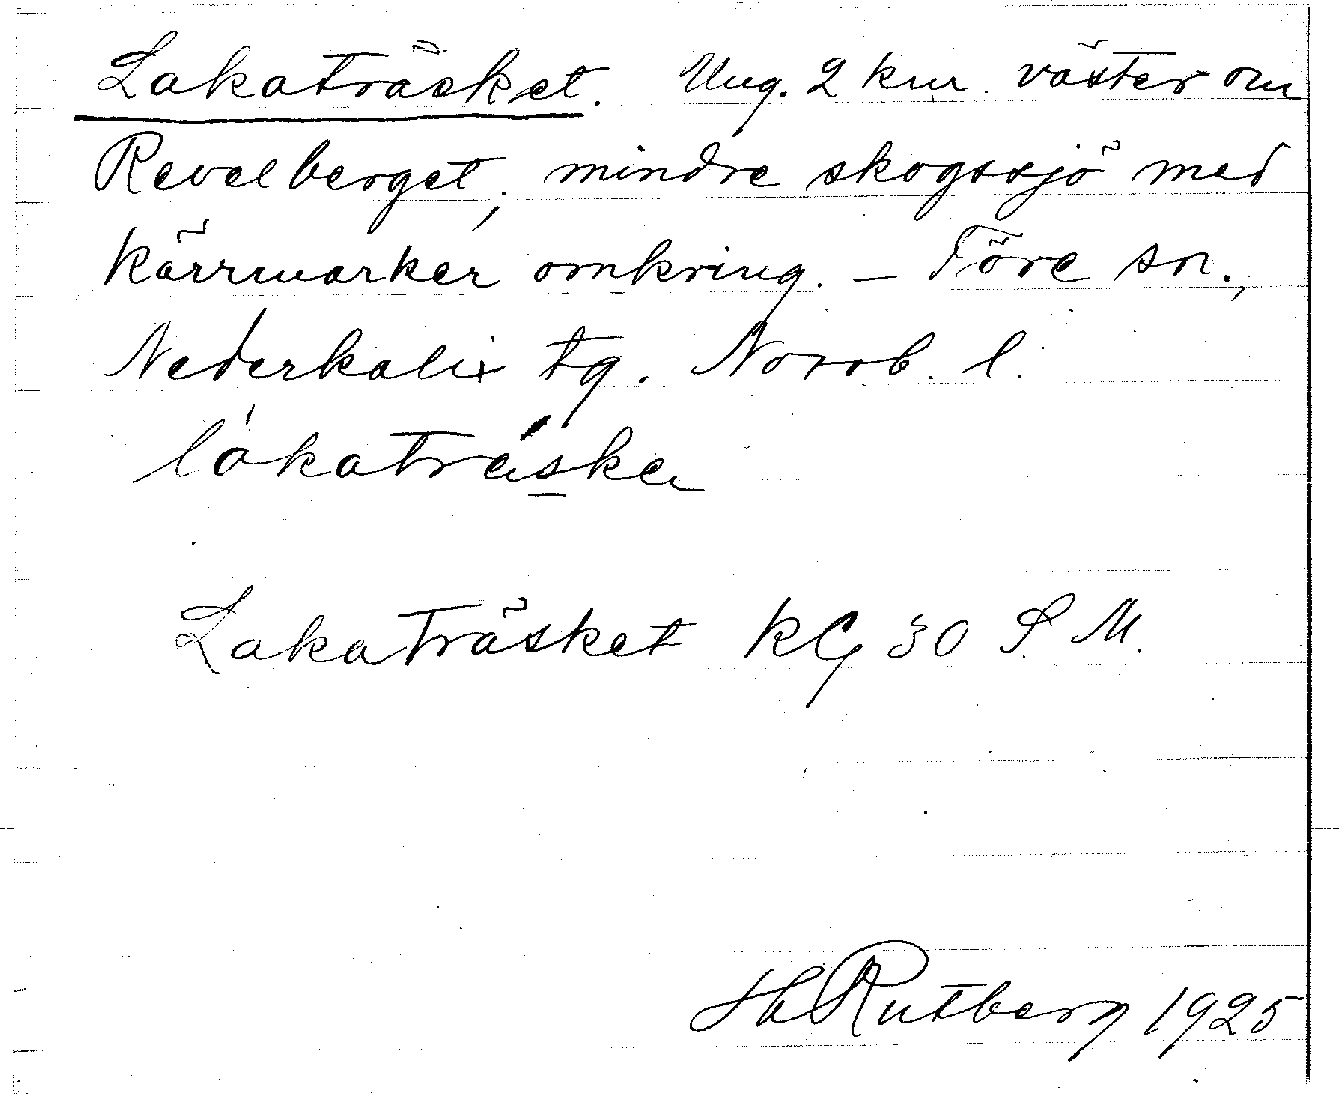 Lakaträsket. Ung. 2 km. väster om
Revelberget; mindre skogssjö med
kärrmarker omkring. – Töre sn.,
Nederkalix tg. Norrb. l.
lákaträ́ske
Lakaträsket KG 30 S. M.
H Rutberg 1925